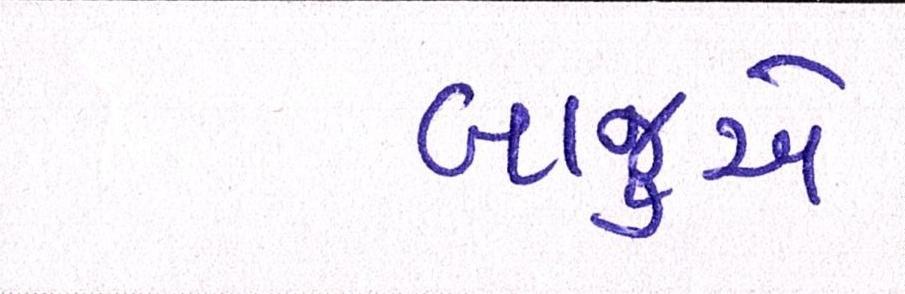 બાજુએ